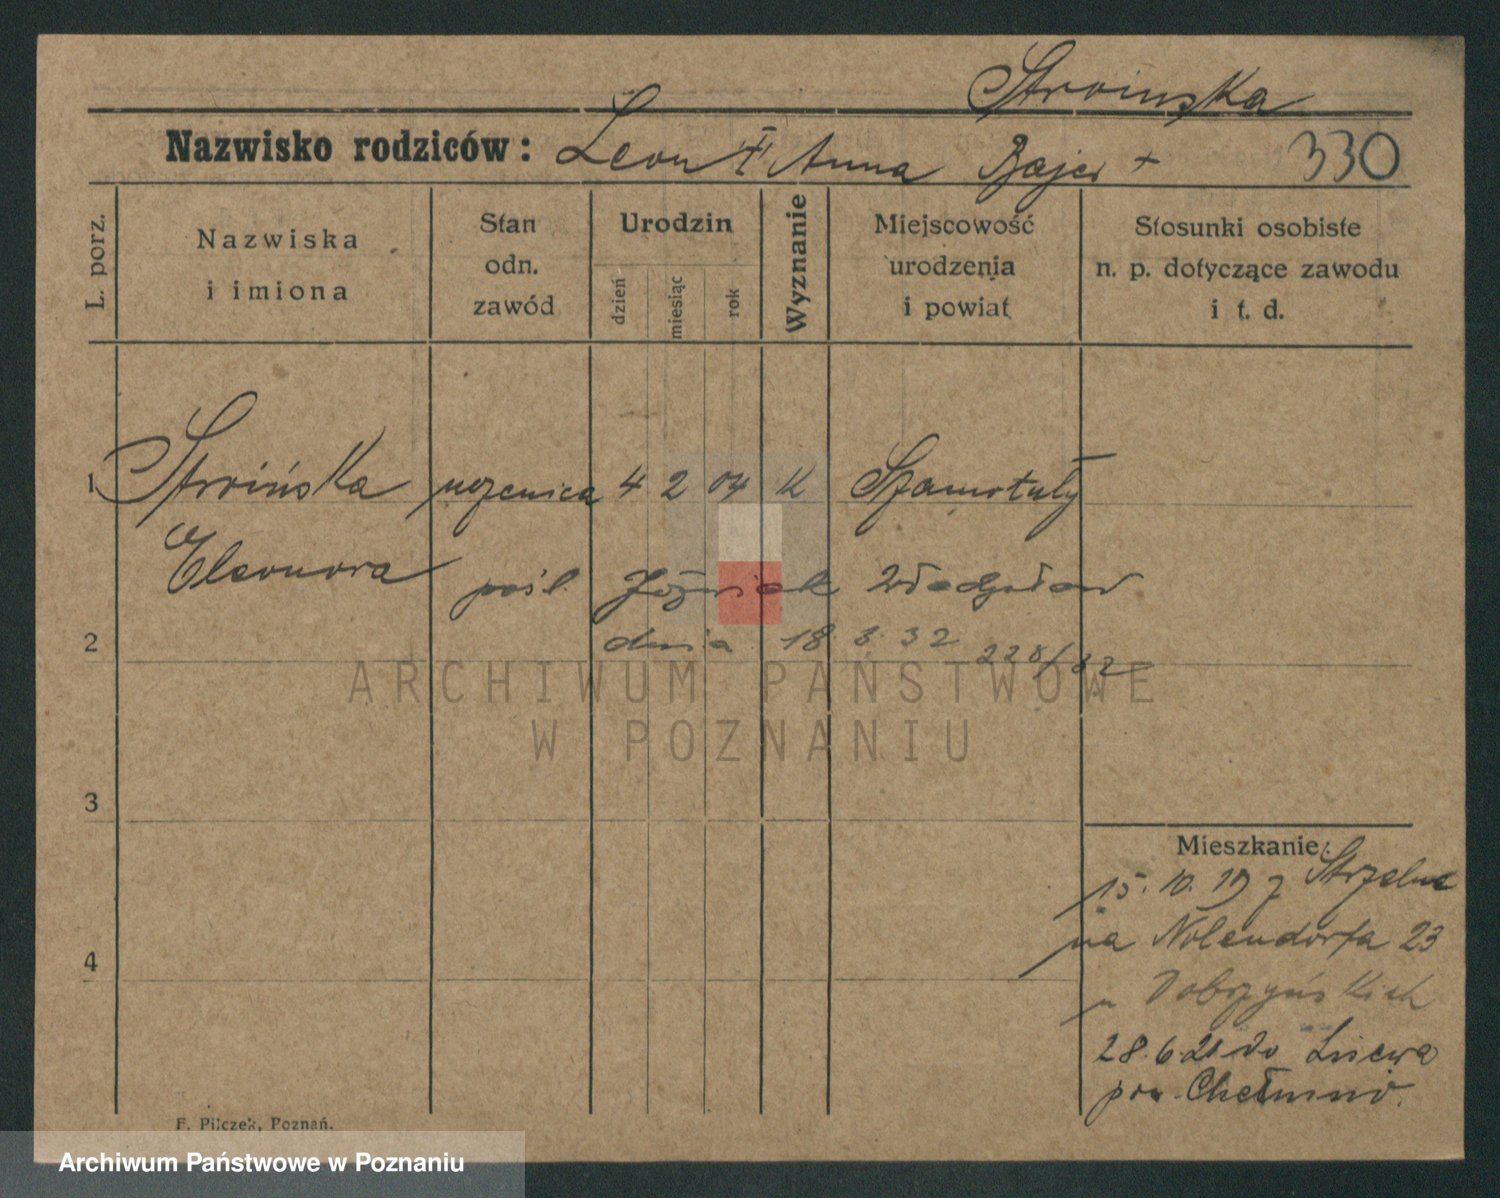 Stroinska
Nazwisko rodziców: Leon + Anna Bajer + 330
L. porz.
Nazwiska
i imiona
Stan
odn.
zawód
Urodzin
dzień
miesiąc
rok
Wyznanie
Miejscowość
urodzenia
i powiat
Stosunki osobiste
n. p. dotyczące zawodu
i t. d.
1 Stroińska uczenica 4 2 04 K Szamotuły
Eleonora pośl. Jóźwiak Władysław
2 dnia 18. 3. 32 228/32
ARCHIWUM PAŃSTWOWE
W POZNANIU
3
Mieszkanie:
15. 10. 19 z Strzelna
na Nolendorfa 23
4
u Dobrzyńskich
28. 6. 21 do Lisewa
pow. Chełmno.
F. Pilczek, Poznań.
Archiwum Państwowe w Poznaniu